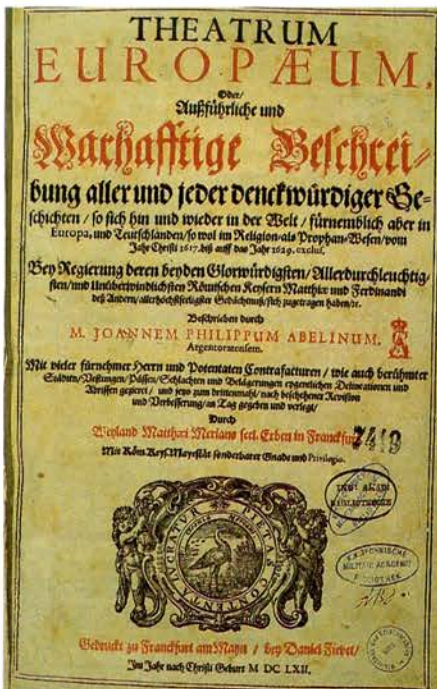 THEATRUM
EUROPÆUM,
Oder/
Außführliche und
Warhafftige Beschrei-
bung aller und jeder denckwürdiger Ge-
schichten / so sich hin und wieder in der Welt / fürnemblich aber in
Europa, und Teutschlanden / so wol im Religion- als Prophan-Wesen / vom
Jahr Christi 1617. biß auff das Jahr 1629. exclus.
Bey Regierung deren beyden Glorwürdigsten / Allerdurchleuchtig-
sten / und Unüberwindlichsten Römischen Keysern Matthiæ und Ferdinandi
deß Andern / allerhöchstseeligster Gedächtnuß / sich zugetragen haben / rc.
Beschrieben durch
M. JOANNEM PHILIPPUM ABELINUM,
Argentoratensem.
Mit vieler fürnehmer Herrn und Potentaten Contrafacturen / wie auch berühmter
Städten / Vestungen / Pässen / Schlachten und Belägerungen eygentlichen Delineationen und
Abrissen gezieret / und jetzo zum drittenmahl / nach beschehener Revision
und Verbesserung / an Tag gegeben und verlegt /
Durch
Weyland Matthæi Merians seel. Erben in Franckfurt
7419
Mit Röm. Keys. Mayestät sonderbarer Gnade und Privilegio.
BIBLIOTHECKE
PIETAS CONTENTA LUCRATUR
K.K. TECHNISCHE
MILITÄR ACADEMIE
BIBLIOTHEK
Gedruckt zu Franckfurt am Mayn / bey Daniel Fievet /
Im Jahr nach Christi Geburt M DC LXII.